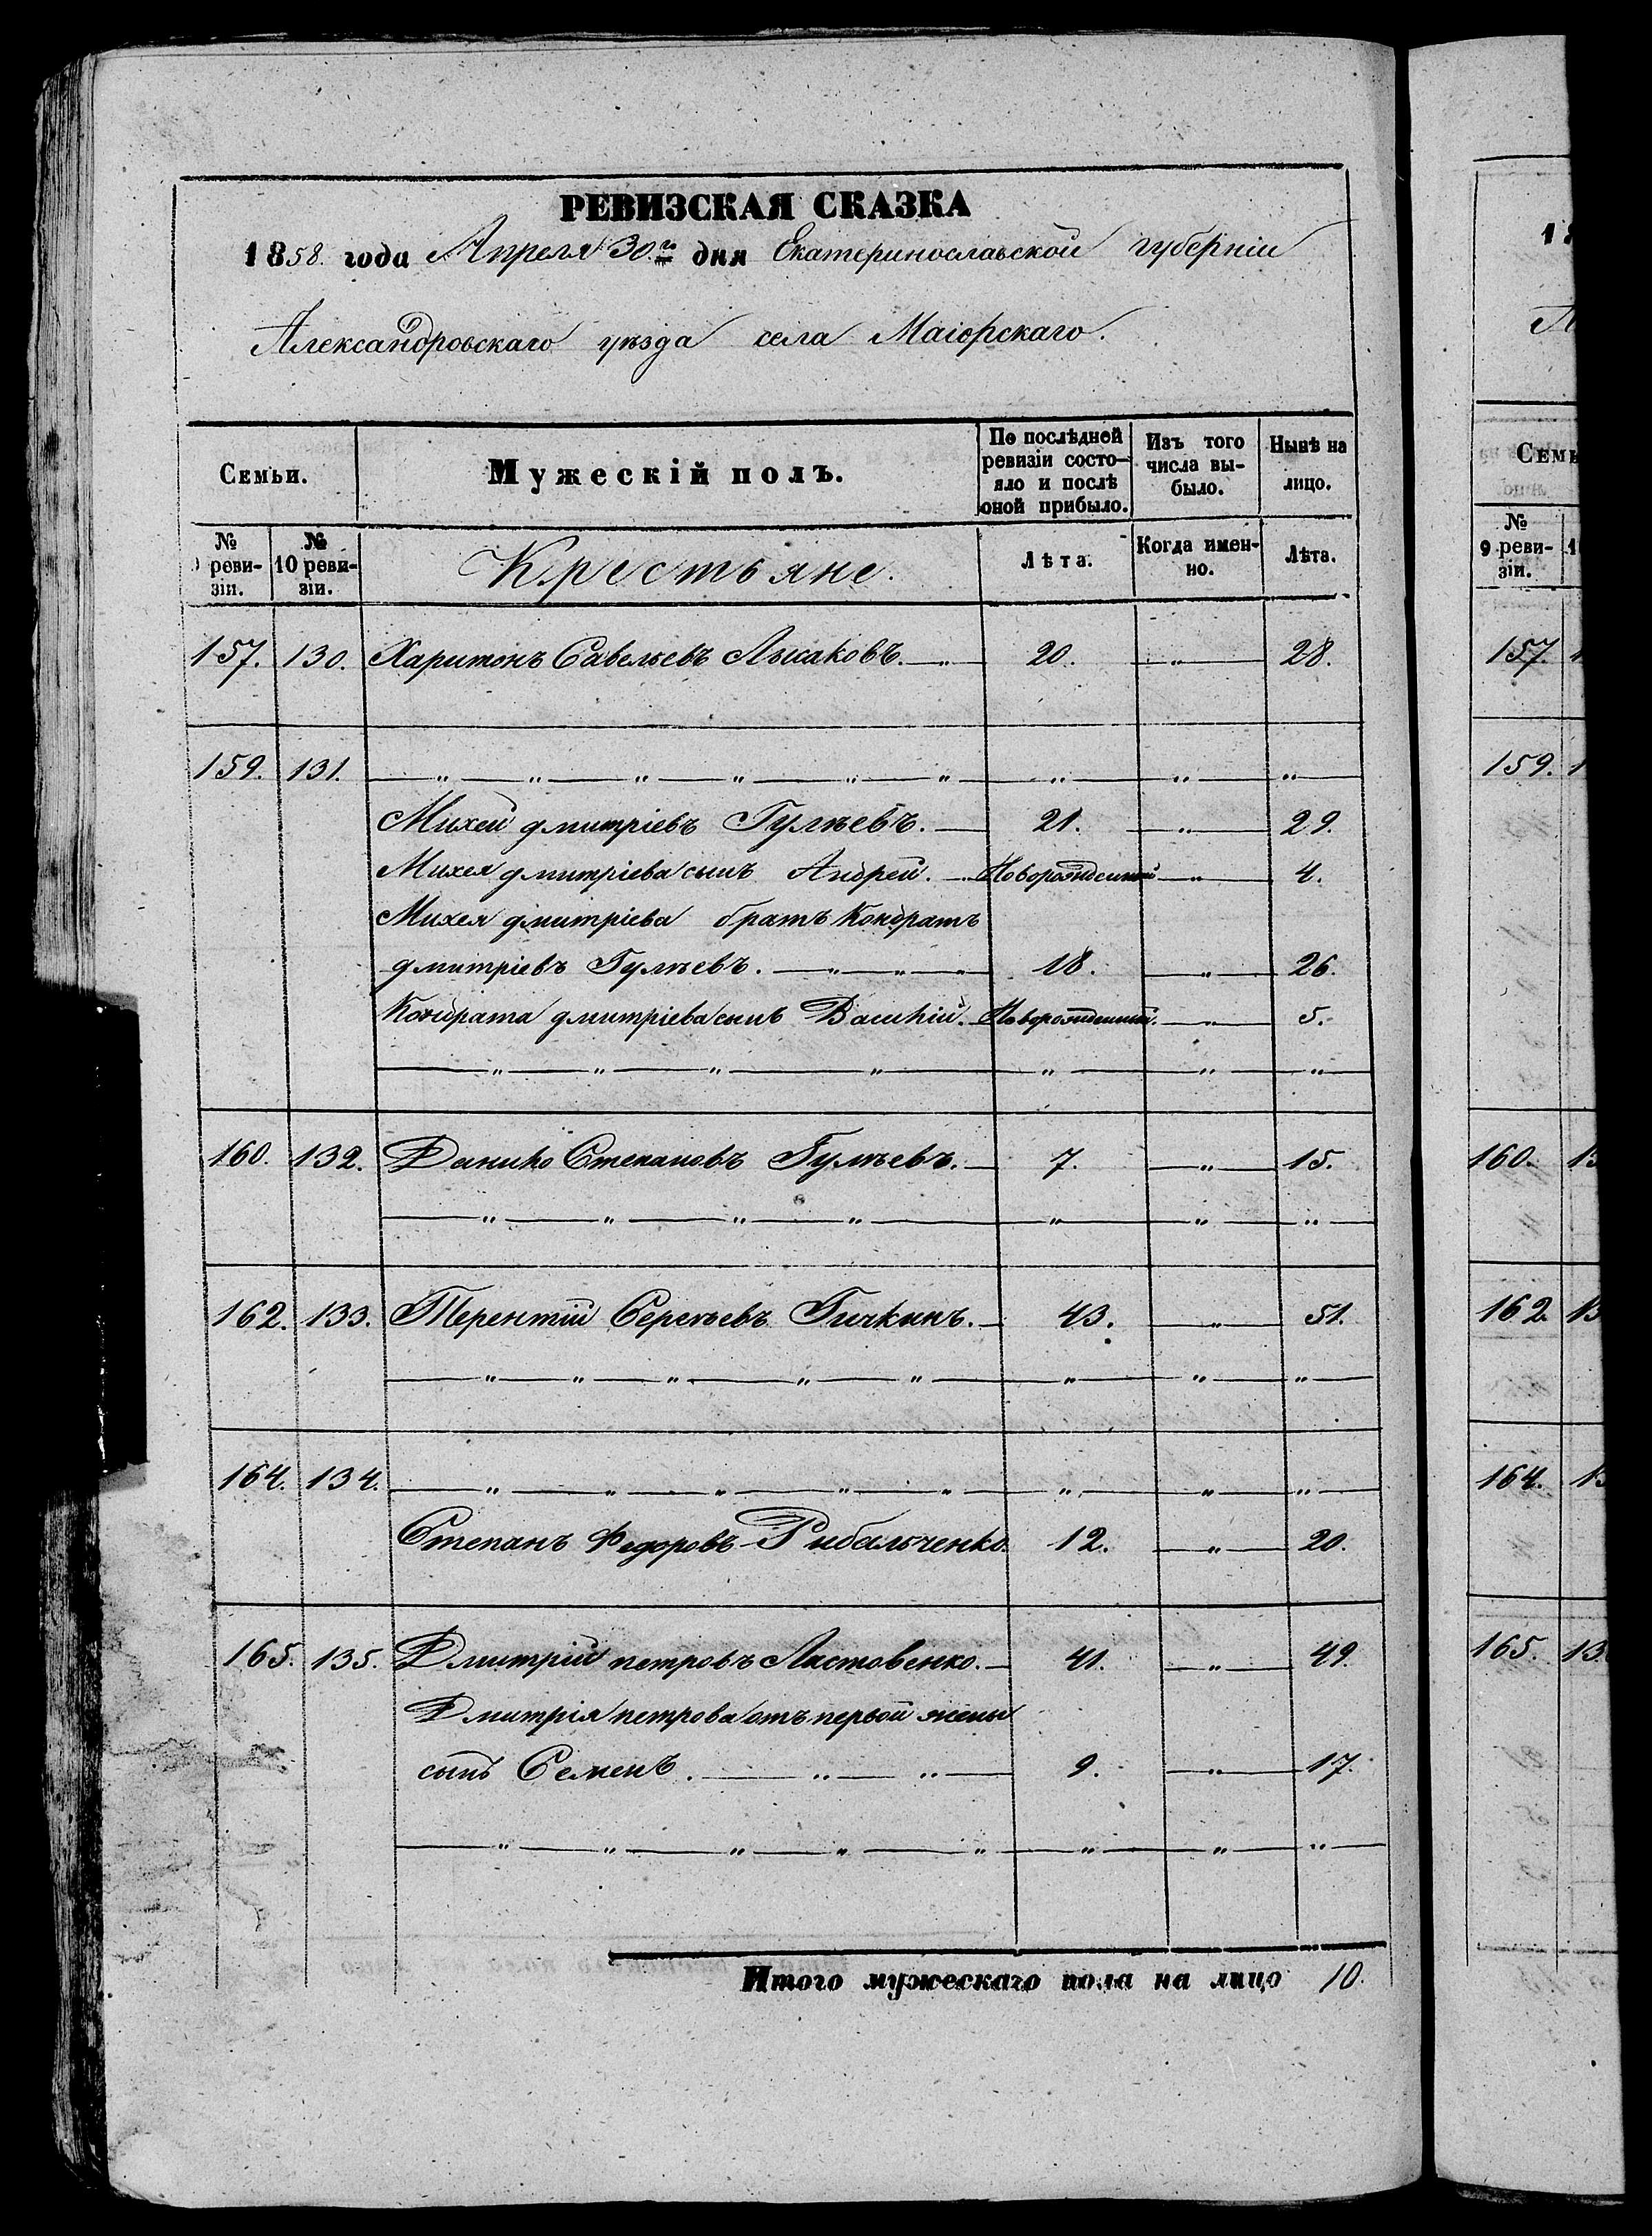 РЕВИЗСКАЯ СКАЗКА
1858. года Апреля 30го дня Екатеринославской губерніи
Александровскаго уѣзда села Маіорскаго.
Семьи. Мужескій полъ. По послѣдней ревизіи состояло и послѣ оной прибыло. Изъ того числа выбыло. Нынѣ на лицо.
№ ревизіи. № 10 ревизіи. Крестьяне. Лѣта. Когда именно. Лѣта.
157. 130. Харитонъ Савельевъ Лысаковъ. — „ — 20. — „ — 28.
159. 131. — „ — „ — „ — „ — „ — „ — „ — „ — „ —
Михей дмитріевъ Гулѣевъ. — 21. — „ — 29.
Михея дмитріева сынъ Андрей. — Новорожденный — „ — 4.
Михея дмитріева братъ Кондратъ
дмитріевъ Гулѣевъ. — „ — „ — „ — 18. — „ — 26.
Кондрата дмитріева сынъ Василій. — Новорожденный. — „ — 5.
— „ — „ — „ — „ — „ — „ — „ —
160. 132. Данило Степановъ Гулѣевъ. — 7. — „ — 15.
— „ — „ — „ — „ — „ — „ — „ —
162. 133. Терентій Сергѣевъ Гичкинъ. — 43. — „ — 51.
— „ — „ — „ — „ — „ — „ — „ — „ —
164. 134. — „ — „ — „ — „ — „ — „ — „ — „ —
Степанъ Федоровъ Рибальченко 12. — „ — 20.
165. 135. Дмитрій петровъ Ластовенко. — 41. — „ — 49.
Дмитрія петрова отъ первой жены
сынъ Семенъ. — „ — „ — 9. — „ — 17.
— „ — „ — „ — „ — „ — „ — „ — „ —
Итого мужескаго пола на лицо 10.
№ 9 ревизіи.
157.
159.
160.
162.
164.
165.